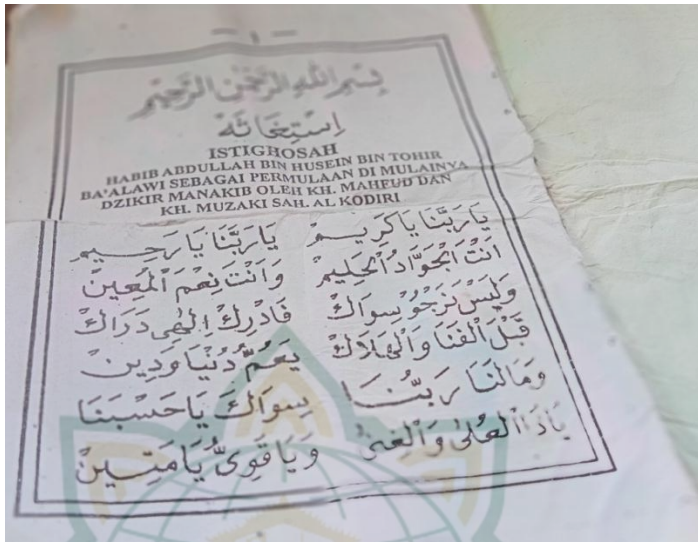 - ١ -
بِسْمِ اللهِ الرَّحْمٰنِ الرَّحِيْمِ
اِسْتِغَاثَهْ
ISTIGHOSAH
HABIB ABDULLAH BIN HUSEIN BIN TOHIR
BA'ALAWI SEBAGAI PERMULAAN DI MULAINYA
DZIKIR MANAKIB OLEH KH. MAHFUD DAN
KH. MUZAKI SAH. AL KODIRI
يَارَبَّنَا يَاكَرِيْم يَارَبَّنَا يَارَحِيْم
اَنْتَ الْجَوَّادُ الْحَلِيْم وَاَنْتَ نِعْمَ الْمُعِيْن
وَلَيْسَ نَرْجُوْ سِوَاكْ فَادْرِكْ اِلٰهِى دَرَاكْ
قَبْلَ الْفَنَا وَالْهَلَاكْ يَعُمُّ دُنْيَا وَدِيْن
وَمَالَنَا رَبَّنَا سِوَاكَ يَاحَسْبَنَا
يَاذَا الْعُلٰى وَالْغِنٰى وَيَاقَوِيُّ يَامَتِيْن